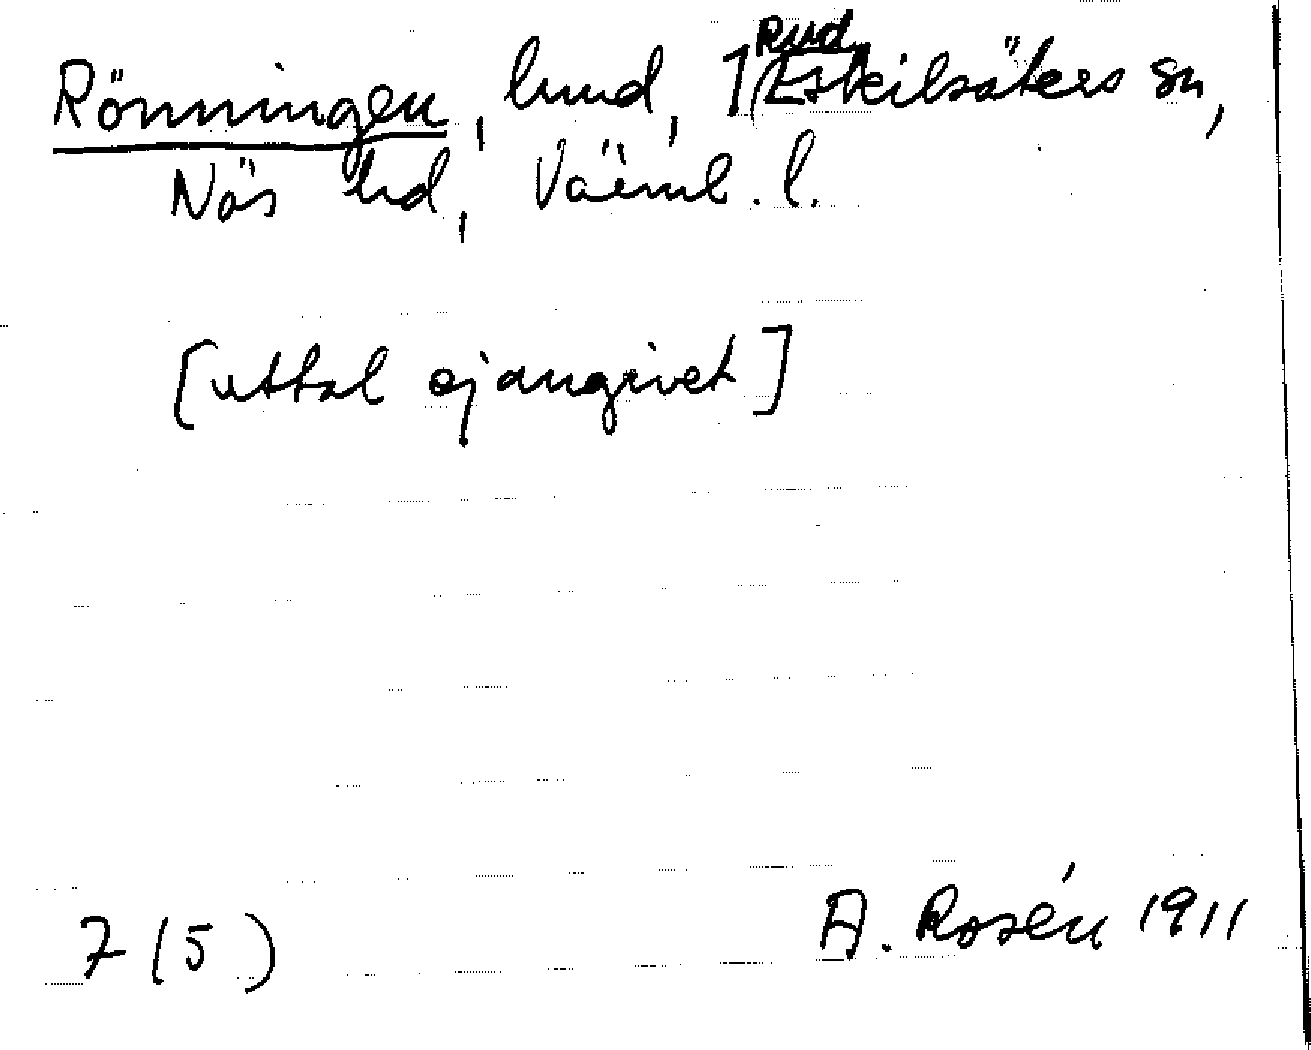 Rönningen, hmd, 1/Rud Eskilsäters sn,
Näs hd, Värml. l.
[uttal ej angivet]
7 (5)
A. Rosén 1911